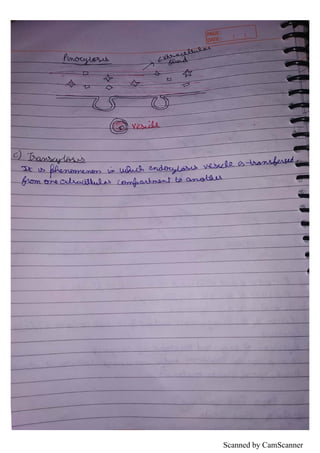 PAGE
DATE
Pinocytosis
extracellular
fluid
vesicle
c) Transcytosis
It is phenomenon in which endocytosis vesicle is transfered
from one extracellular compartment to another
Scanned by CamScanner